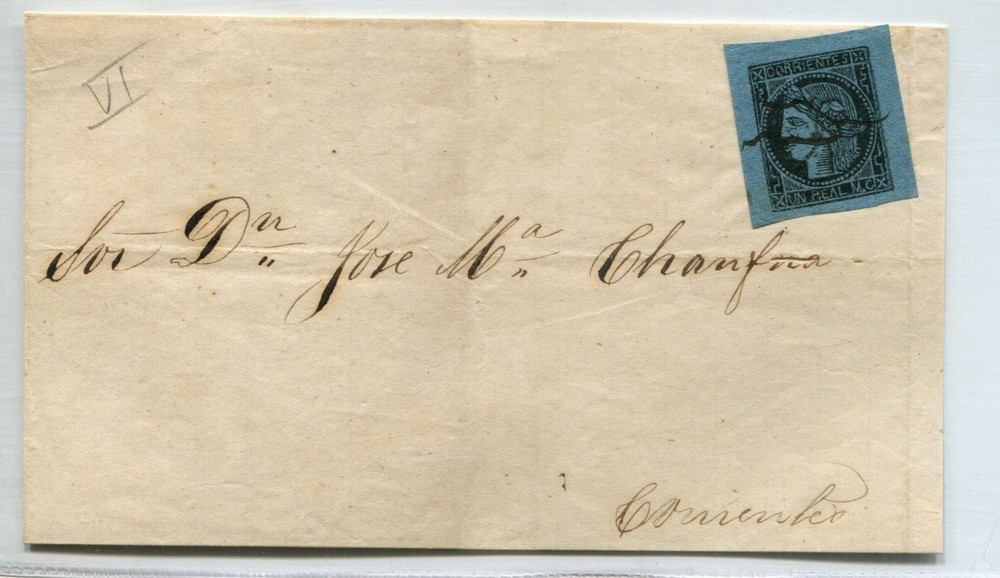 VI
CORRIENTES
UN REAL M.C.
Sor Dn Jose Ma
Corrientes